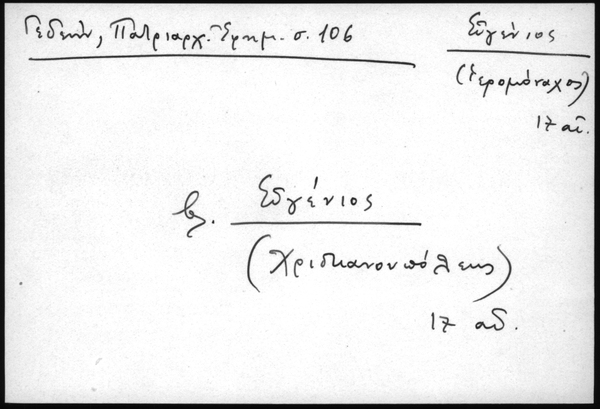 Γεδεών, Πατριαρχ. Ἐφημ. σ. 106
Εὐγένιος
(ἱερομόναχος)
17 αἰ.
βλ. Εὐγένιος
(Χριστιανουπόλεως)
17 αἰ.